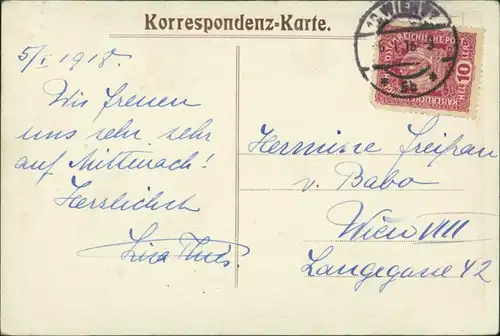 Korrespondenz-Karte.
5/I 1918.
Wir freuen
uns sehr sehr
auf Mittwoch!
Herzlichst
Lisa
WIEN
KAISERLICHE
10
HELLER
Hermine Freifrau
v. Babo
Wien VIII
Langegasse 42